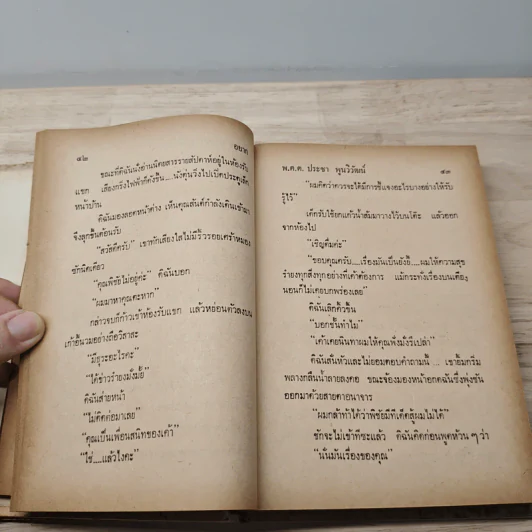 ๔๒
อยาก
ขณะที่ดิฉันนั่งอ่านนิตยสารรายสัปดาห์อยู่ในห้องรับ
แขก เสียงกริ่งไฟฟ้าก็ดังขึ้น....นังตุ่นวิ่งไปเปิดประตูเล็ก
หน้าบ้าน
ดิฉันมองลอดหน้าต่าง เห็นคุณสันต์กำลังเดินเข้ามา
จึงลุกขึ้นต้อนรับ
“สวัสดีครับ” เขาทักเสียงใสไม่มีริ้วรอยเศร้าหมอง
ซักนิดเดียว
“คุณพิชัยไม่อยู่ค่ะ” ดิฉันบอก
“ผมมาหาคุณตะหาก”
กล่าวจบก็ก้าวเข้าห้องรับแขก แล้วหย่อนตัวลงบน
เก้าอี้นวมอย่างถือวิสาสะ
“มีธุระอะไรคะ”
“ได้ข่าวรำยงมั่งมั้ย”
ดิฉันส่ายหน้า
“ไม่ติดต่อมาเลย”
“คุณเป็นเพื่อนสนิทของเค้า”
“ใช่....แล้วไงคะ”
พ.ต.ต. ประชา พูนวิวัฒน์
๔๓
“ผมคิดว่าควรจะได้มีการชี้แจงอะไรบางอย่างให้รับ
รู้ไว้”
เด็กรับใช้ยกแก้วน้ำส้มมาวางไว้บนโต๊ะ แล้วออก
จากห้องไป
“เชิญดื่มค่ะ”
“ขอบคุณครับ....เรื่องมันเป็นยังงี้....ผมให้ความสุข
รำยงทุกสิ่งทุกอย่างที่เค้าต้องการ แม้กระทั่งเรื่องบนเตียง
นอนก็ไม่เคยบกพร่องเลย”
ดิฉันเลิกคิ้วขึ้น
“บอกชั้นทำไม”
“เค้าเคยนินทาผมให้คุณฟังมั่งรึเปล่า”
ดิฉันสั่นหัวและไม่ยอมตอบคำถามนี้ ... เขายิ้มกริ่ม
พลางกลืนน้ำลายลงคอ ขณะจ้องมองหน้าอกดิฉันซึ่งพุ่งชัน
ออกมาด้วยสายตาอนาจาร
“ผมกล้าท้าได้ว่าพิชัยมีทีเด็ดสู้ผมไม่ได้”
ชักจะไม่เข้าทีซะแล้ว ดิฉันคิดก่อนพูดห้วน ๆ ว่า
“นั่นมันเรื่องของคุณ”